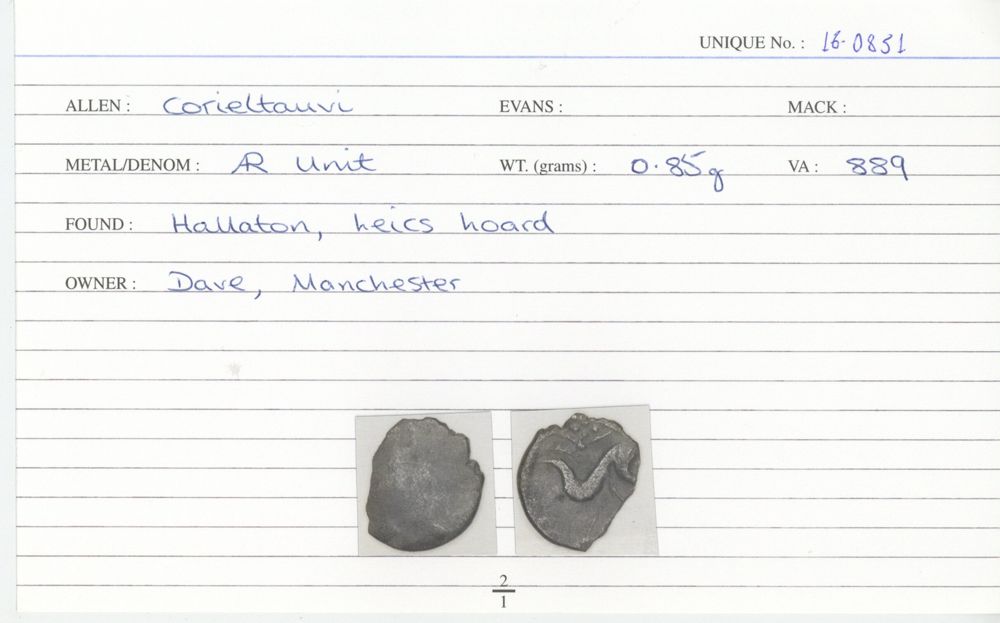 UNIQUE No. : 16-0851
ALLEN : Corieltauvi EVANS : MACK :
METAL/DENOM : AR Unit WT. (grams) : 0.85g VA : 889
FOUND : Hallaton, Leics hoard
OWNER : Dave, Manchester
2
1